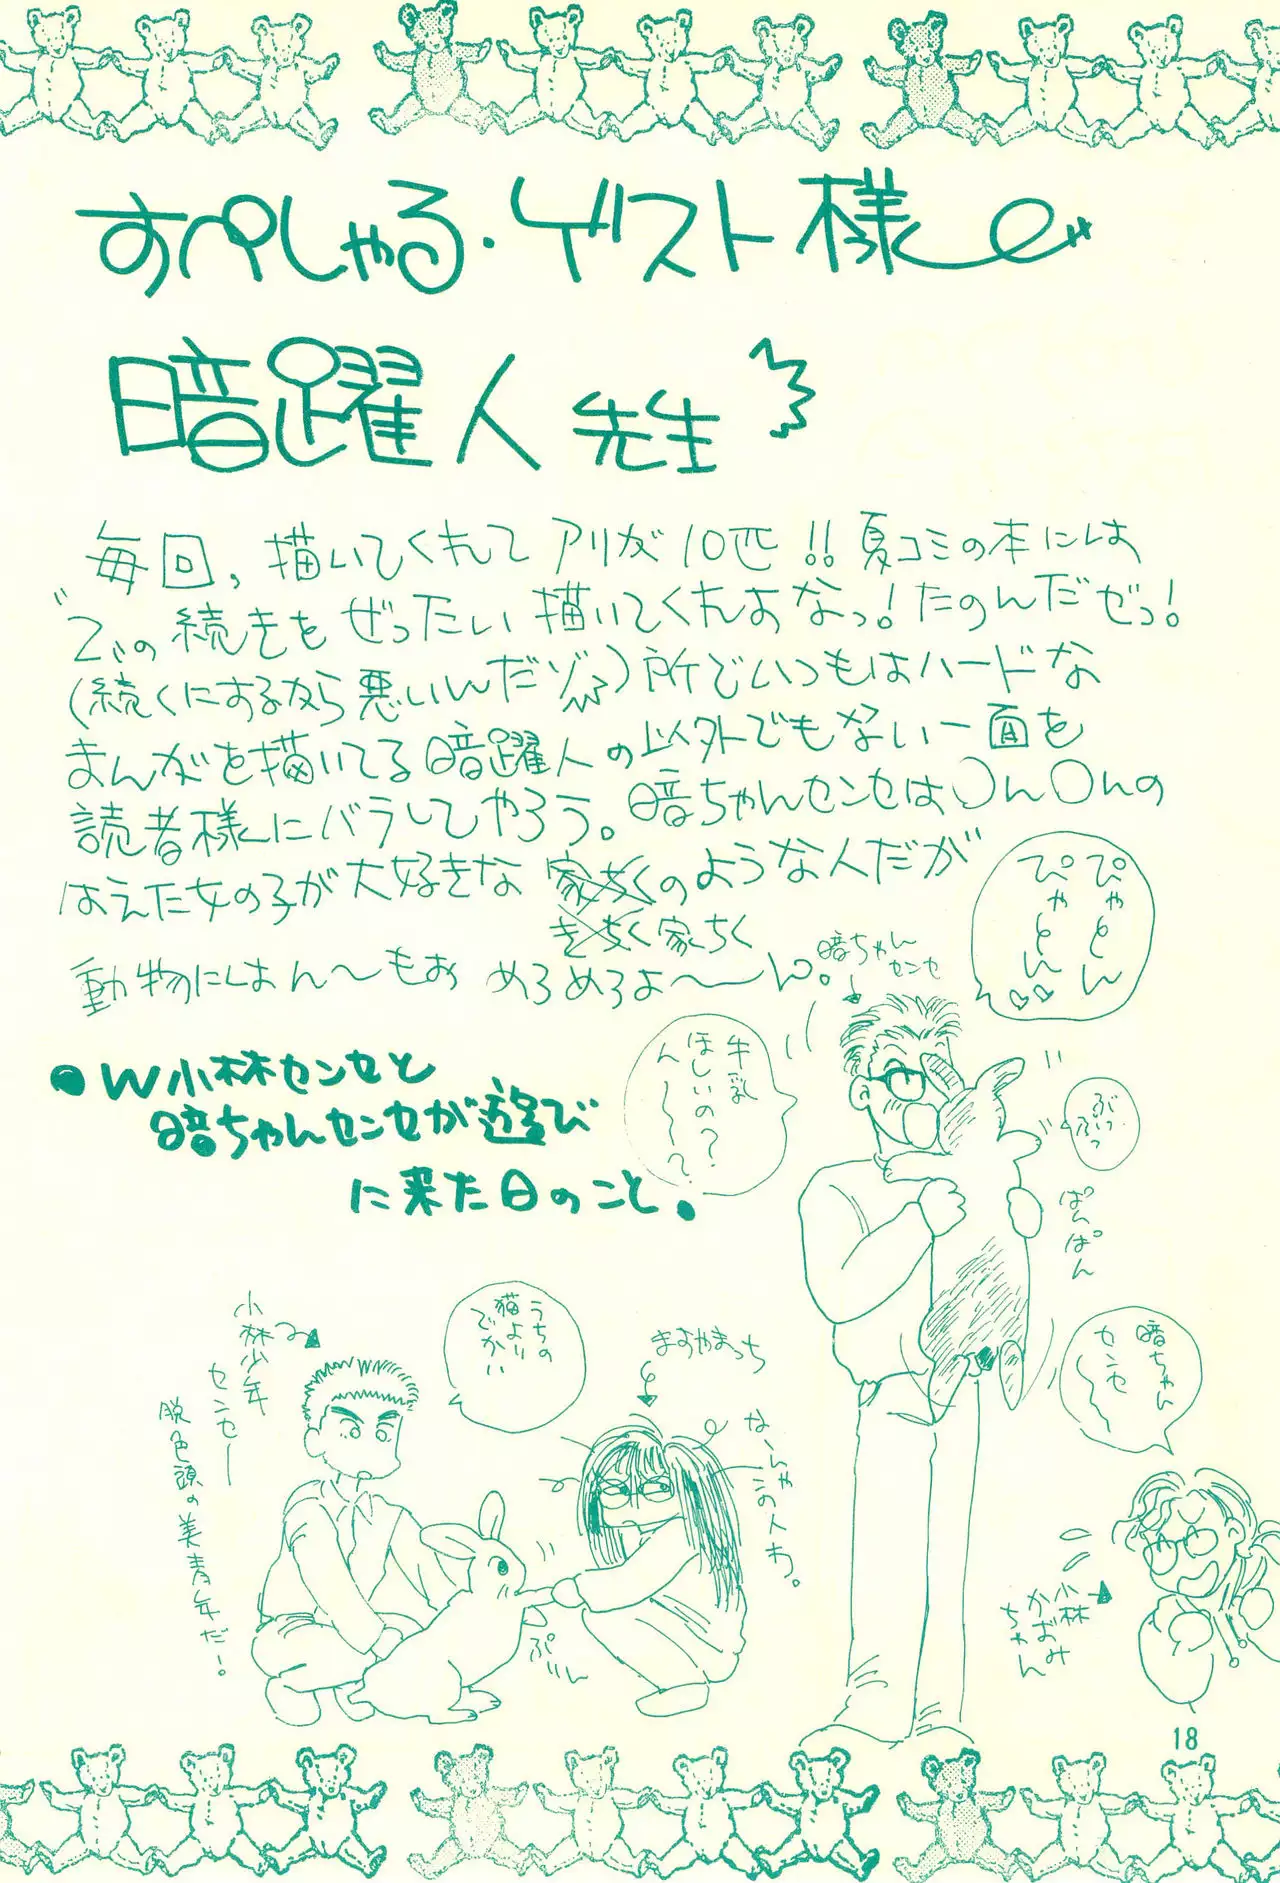 すぺしゃる・ゲスト様
暗躍人 先生
毎回、描いてくれて アリが10匹!! 夏コミの本には
この続きを ぜったい描いてくれよなっ!たのんだぜっ!
(続くにするなら悪いんだゾ)所でいつもはハードな
まんがを描いてる暗躍人の以外でもない一面を
読者様にバラしてやろう。暗ちゃんセンセは〇ん〇んの
はえた女の子が大好きな 家ちくのような人だが
きちく家ちく
動物にはん〜もお めろめろよ〜ん。
ぴゃとん
ぴゃとん♡♡
暗ちゃん
センセ
牛乳
ほしいの?
ん〜〜?
ぶっ
ぶっ
ぱんぱん
●W小林センセと
暗ちゃんセンセが遊び
に来た日のこと。
暗ちゃん
センセ〜
うちの
猫より
でかい
小林少年
センセー
脱色頭の美青年だ!
まおやまっち
なーんやこの人わ。
ぷいん
小林
かおみ
ちゃん
18